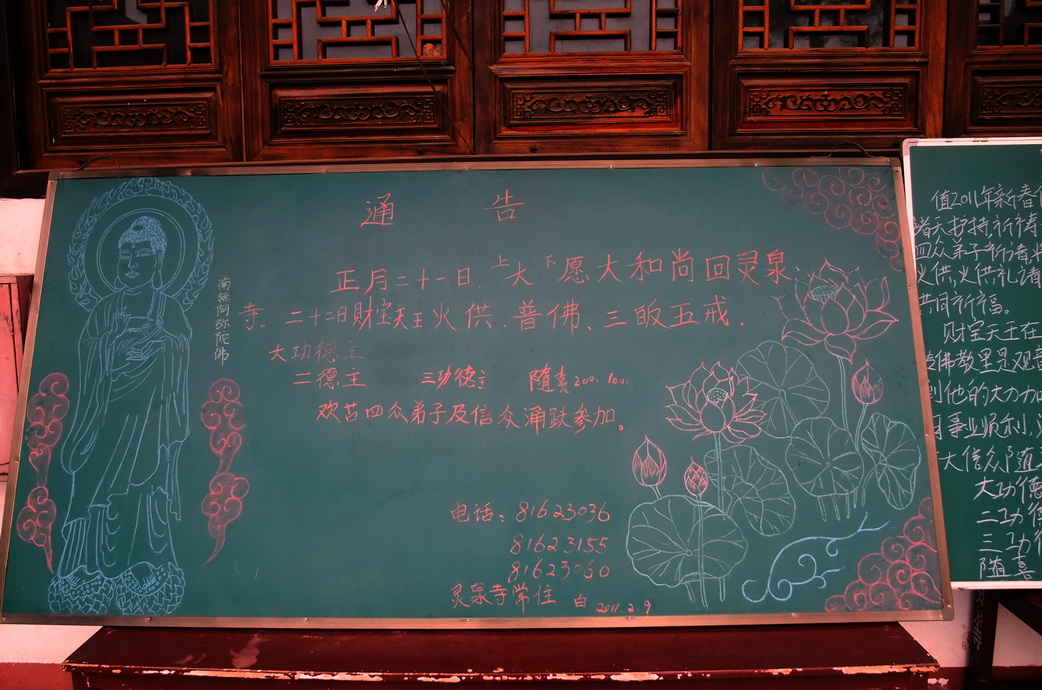 通 告
正月二十一日 上大下愿大和尚回灵泉
寺。二十二日财宝天王火供、普佛、三皈五戒。
大功德主
二德主 三功德主 随喜200.100.
欢苦四众弟子及信众涌跃参加。
电话:81623036
81623155
灵泉寺常住 白 2011.2.9
南無阿弥陀佛
值2011年新春
诸天护持,祈祷
四众弟子祈请
火供,火供礼诸
共同祈福。
财宝天王在
佛教里是观音
到他的大力加
事业顺利,
大信众随
大功德
二功德
三功德
随喜